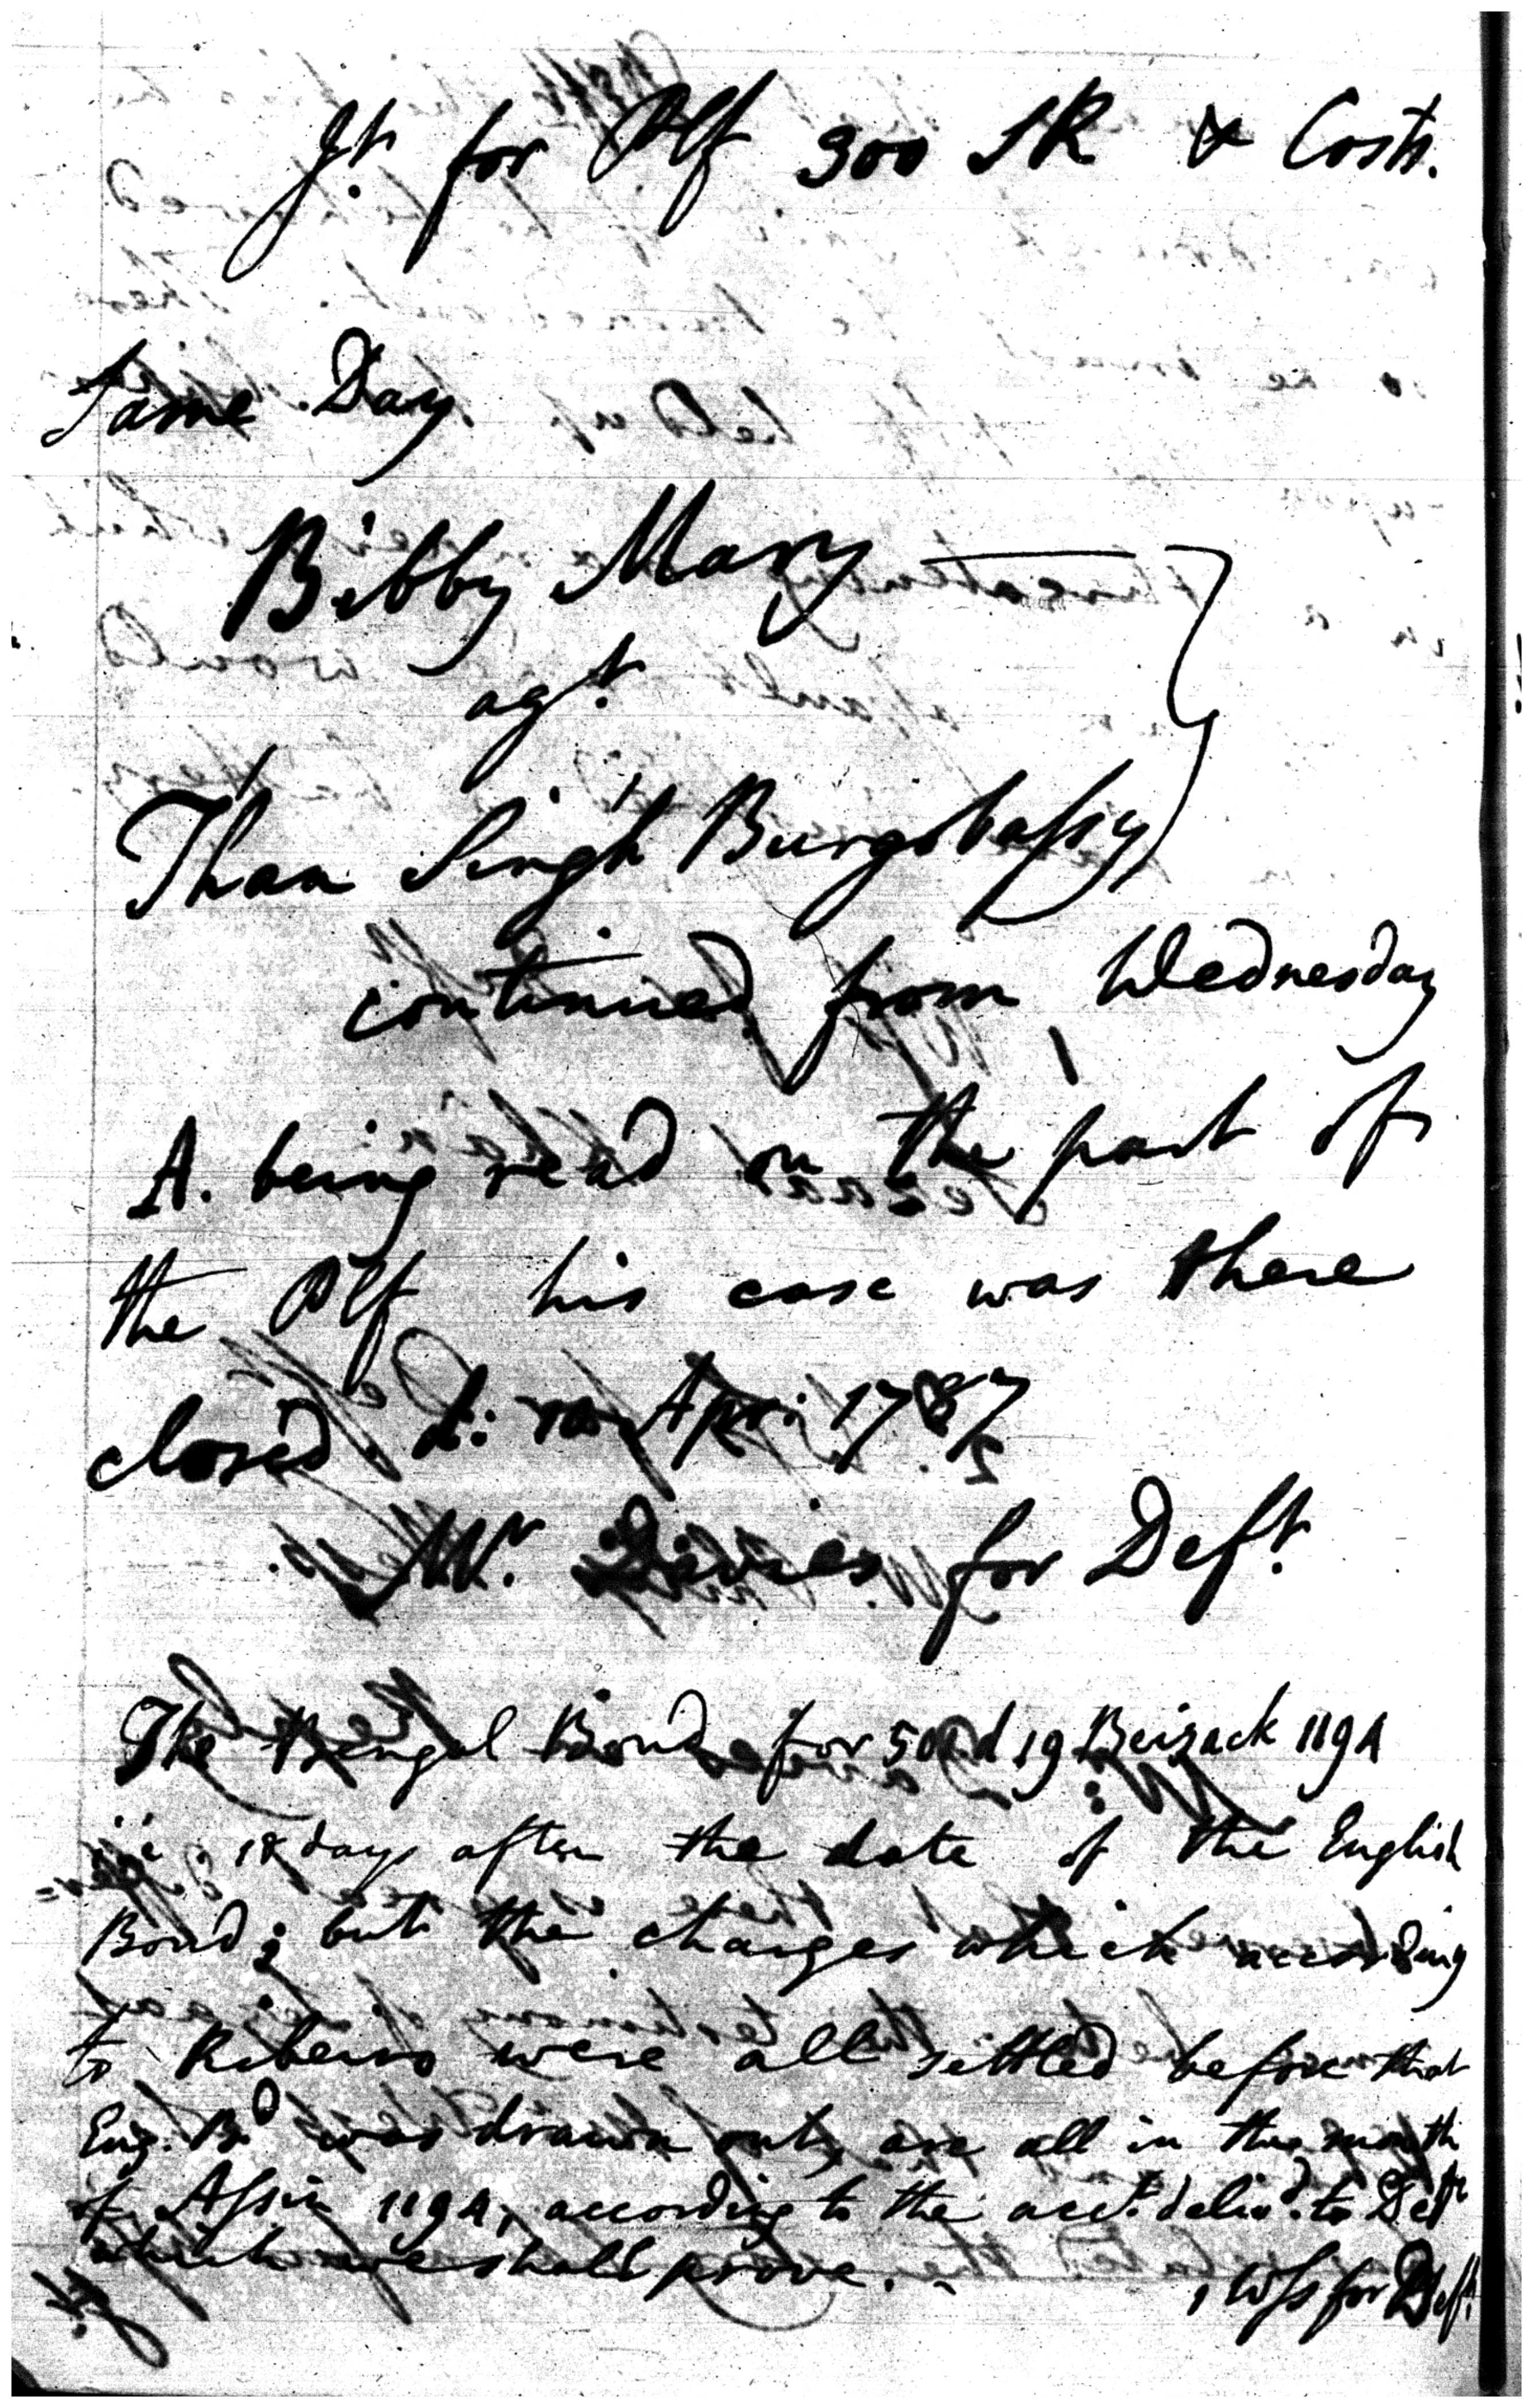 Jt. for Plf 300 SR & Costs.
Same Day
Bibby Mary
agt.
Than Singh Burgobassy
continued from Wednesday
A. being read on the part of
the Plf his case was there
closed. d: 10 Apr: 1787
Mr. Davies for Deft.
The Bengal Bond for 500 d 19 Beizack 1194
i.e. 18 days after the date of the English
Bond; but the charges which according
to Ribeiro were all settled before that
Eng. Bd was drawn out, are all in the month
of Assin 1194, according to the acct. delivd. to Deft
which we shall prove.
, Wss for Deft.